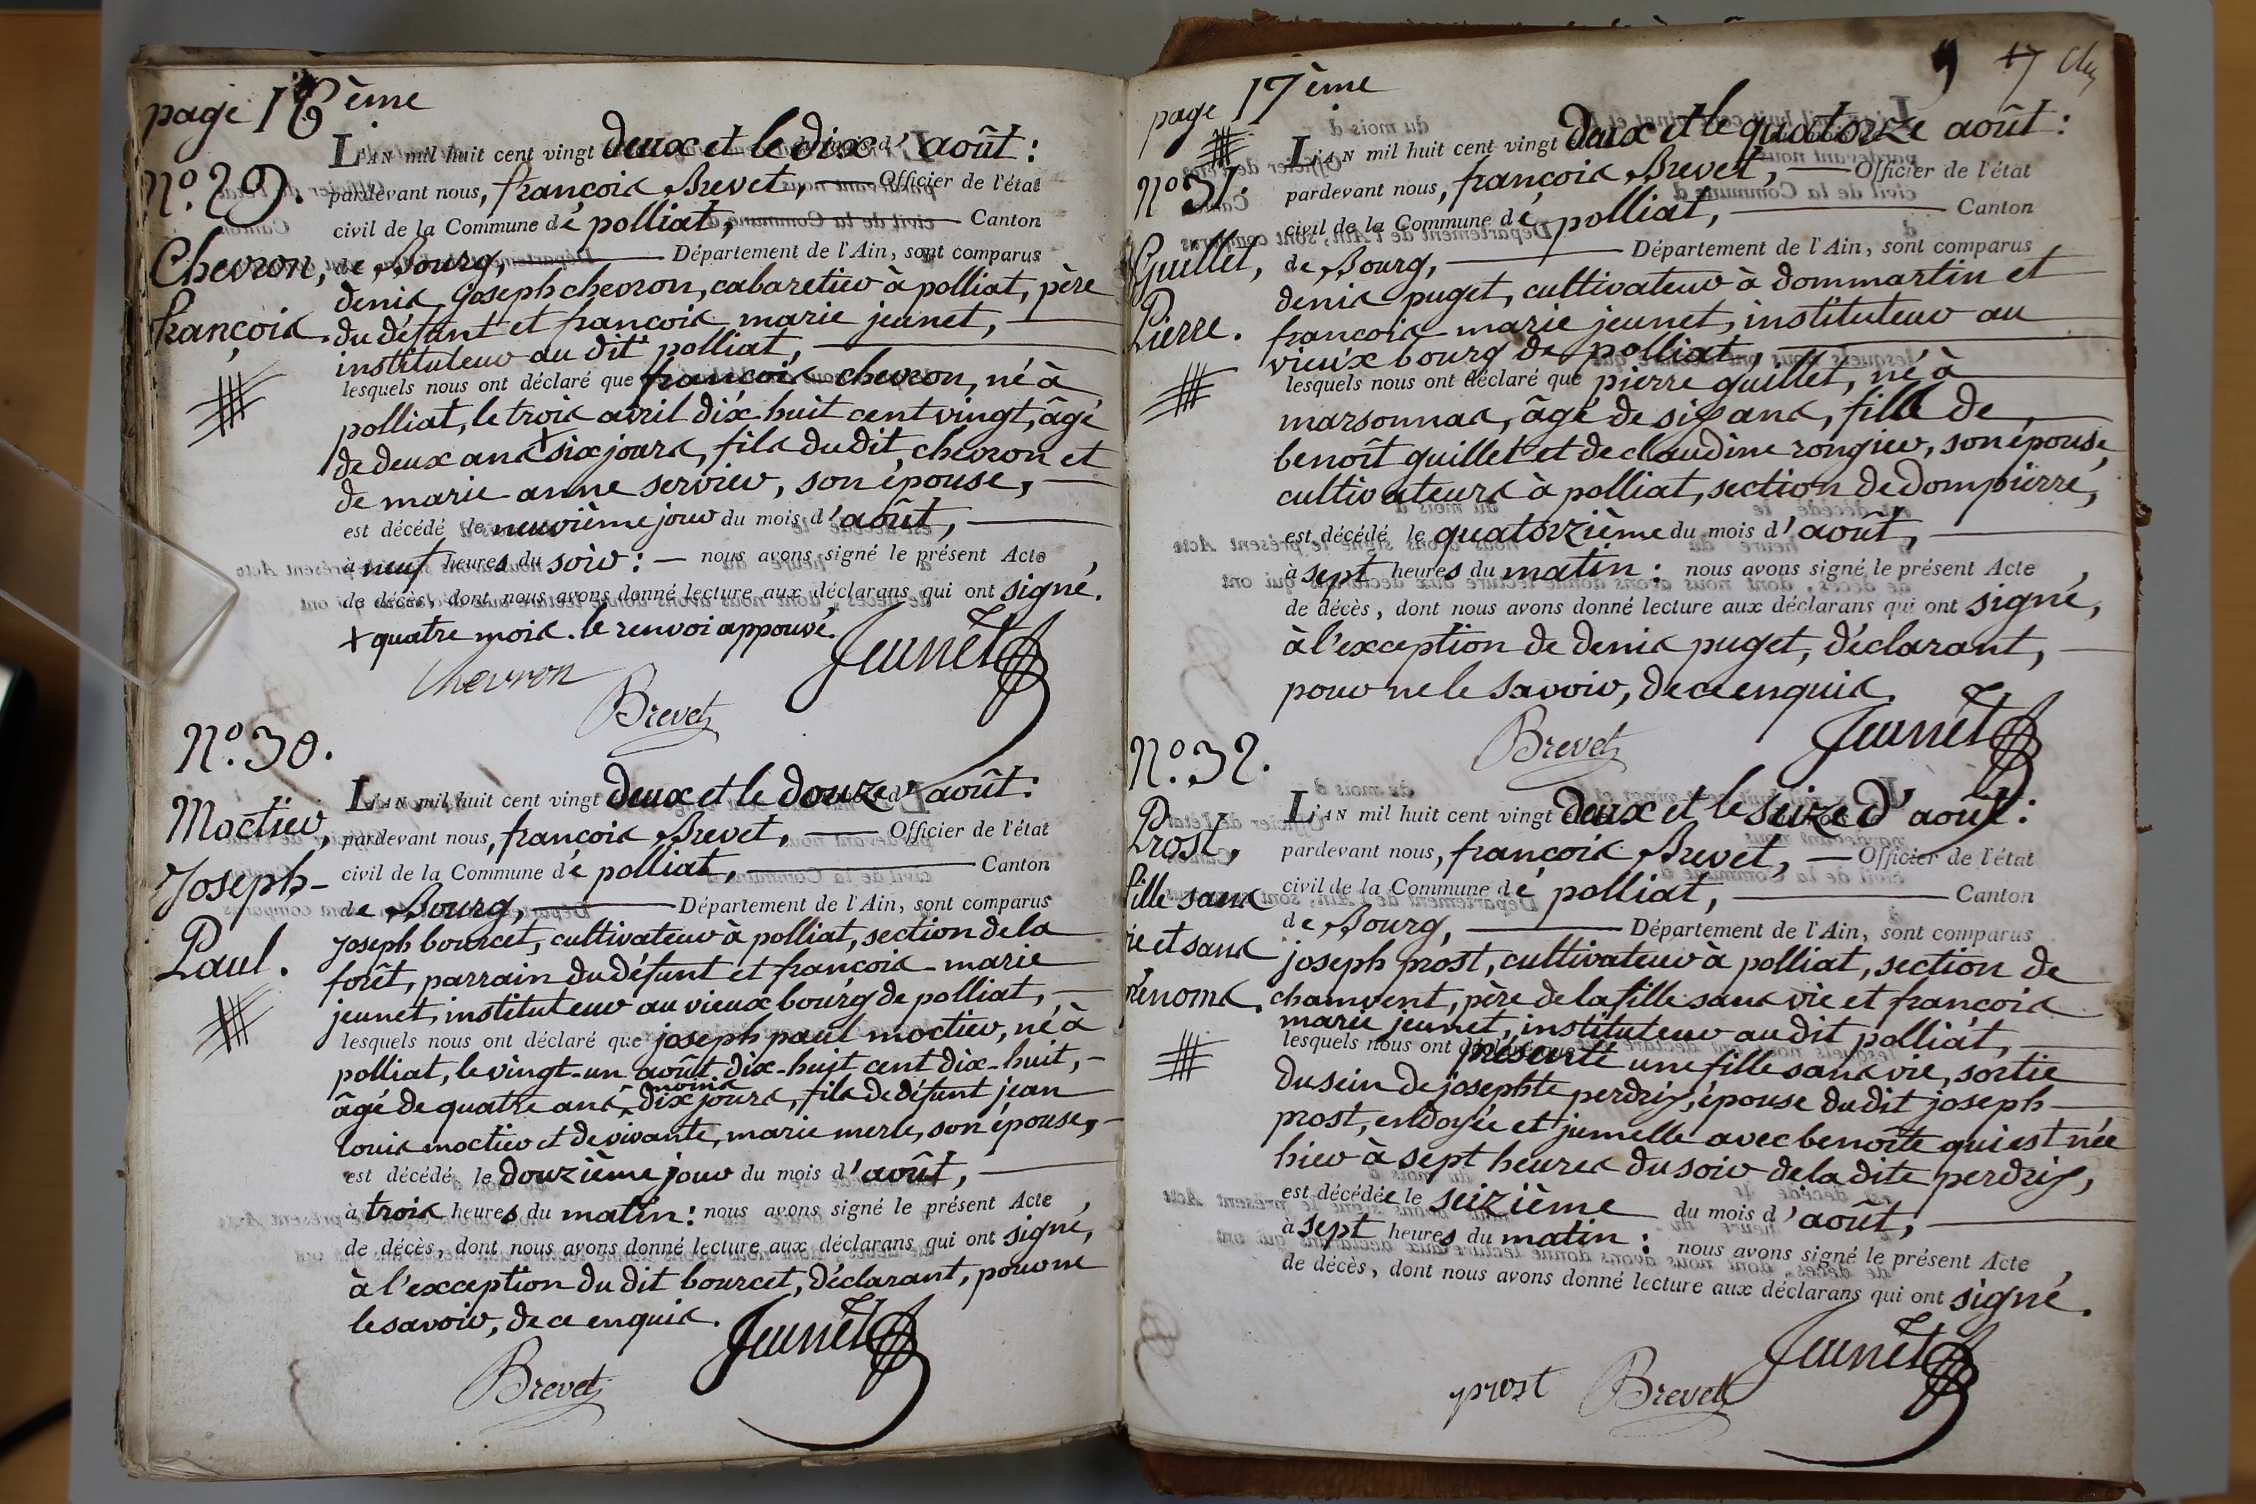 page 16ème
N.º 29.
Chevron,
françois.
L'AN mil huit cent vingt deux et le dix d'août:
pardevant nous, françois Brevet, Officier de l'état
civil de la Commune dé polliat, Canton
de Bourg, Département de l'Ain, sont comparus
denis joseph chevron, cabaretier à polliat, père
du défunt et françois marie jeunet,
instituteur au dit polliat,
lesquels nous ont déclaré que françois chevron, né à
polliat, le trois avril dix-huit cent vingt, âgé
de deux ans + six jours, fils du dit chevron et
de marie anne servier, son épouse,
est décédé le neuvième jour du mois d'août,
à neuf heures du soir: nous avons signé le présent Acte
de décès, dont nous avons donné lecture aux déclarans qui ont signé.
+ quatre mois. le renvoi appouvé.
Chevron Jeunet
Brevet
N.º 30.
Moctier,
Joseph-
Paul.
L'AN mil huit cent vingt deux et le douze d'août:
pardevant nous, françois Brevet, Officier de l'état
civil de la Commune dé polliat, Canton
de Bourg, Département de l'Ain, sont comparus
joseph bourcet, cultivateur à polliat, section de la
forêt, parrain du défunt et françois marie
jeunet, instituteur au vieux bourg de polliat,
lesquels nous ont déclaré que joseph paul moctier, né à
polliat, le vingt-un août dix-huit cent dix-huit,
âgé de quatre ans moins dix jours, fils de défunt jean
louis moctier et de vivante, marie merle, son épouse,
est décédé le douzième jour du mois d'août,
à trois heures du matin: nous avons signé le présent Acte
de décès, dont nous avons donné lecture aux déclarans qui ont signé,
à l'exception du dit bourcet, déclarant, pour ne
le savoir, de ce enquis.
Jeunet
Brevet
page 17ème
17
N.º 31.
Guillet,
Pierre.
L'AN mil huit cent vingt deux et le quatorze août:
pardevant nous, françois Brevet, Officier de l'état
civil de la Commune dé polliat, Canton
de Bourg, Département de l'Ain, sont comparus
denis puget, cultivateur à dommartin et
françois marie jeunet, instituteur au
vieux bourg de polliat,
lesquels nous ont déclaré que pierre guillet, né à
marsonnas, âgé de six ans, fils de
benoît guillet et de claudine rongier, son épouse,
cultivateurs à polliat, section de dompierre,
est décédé le quatorzième du mois d'août,
à sept heures du matin: nous avons signé le présent Acte
de décès, dont nous avons donné lecture aux déclarans qui ont signé,
à l'exception de denis puget, déclarant,
pour ne le savoir, de ce enquis.
Brevet Jeunet
N.º 32.
Prost,
fille sans
vie et sans
prénoms.
L'AN mil huit cent vingt deux et le seize d'août:
pardevant nous, françois Brevet, Officier de l'état
civil de la Commune dé polliat, Canton
de Bourg, Département de l'Ain, sont comparus
joseph prost, cultivateur à polliat, section de
chanvent, père de la fille sans vie et françois
marie jeunet, instituteur au dit polliat,
lesquels nous ont présenté une fille sans vie, sortie
du sein de josephte perdrix, épouse du dit joseph
prost, endoyée et jumelle avec benoîte qui est née
hier à sept heures du soir de la dite perdrix,
est décédée le seizième du mois d'août,
à sept heures du matin: nous avons signé le présent Acte
de décès, dont nous avons donné lecture aux déclarans qui ont signé.
Jeunet
prost Brevet